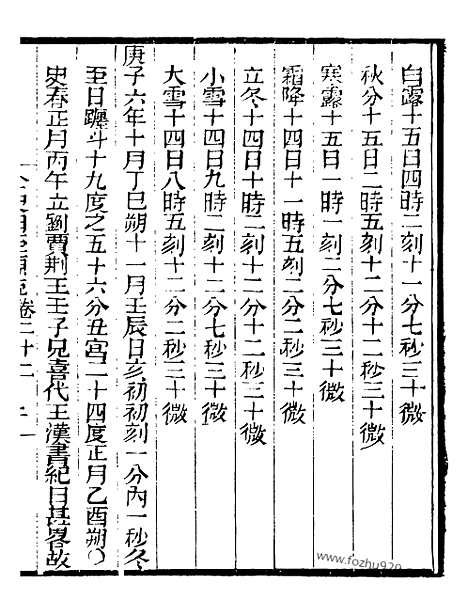 白露十五日四時二刻十一分七秒三十微
秋分十五日二時五刻十二分十二秒三十微
寒露十五日一時一刻二分七秒三十微
霜降十四日十一時五刻二分二秒三十微
立冬十四日十時二刻十二分十二秒三十微
小雪十四日九時二刻十二分七秒三十微
大雪十四日八時五刻十二分二秒三十微
庚子六年十月丁巳朔十一月壬辰日亥初初刻一分內一秒冬
至日躔斗十九度之五十六分丑宮二十四度正月乙酉朔〇
史春正月丙午立劉賈荆王壬子兄喜代王漢書紀日甚畧故
卷二十二
www.fozhu920.com